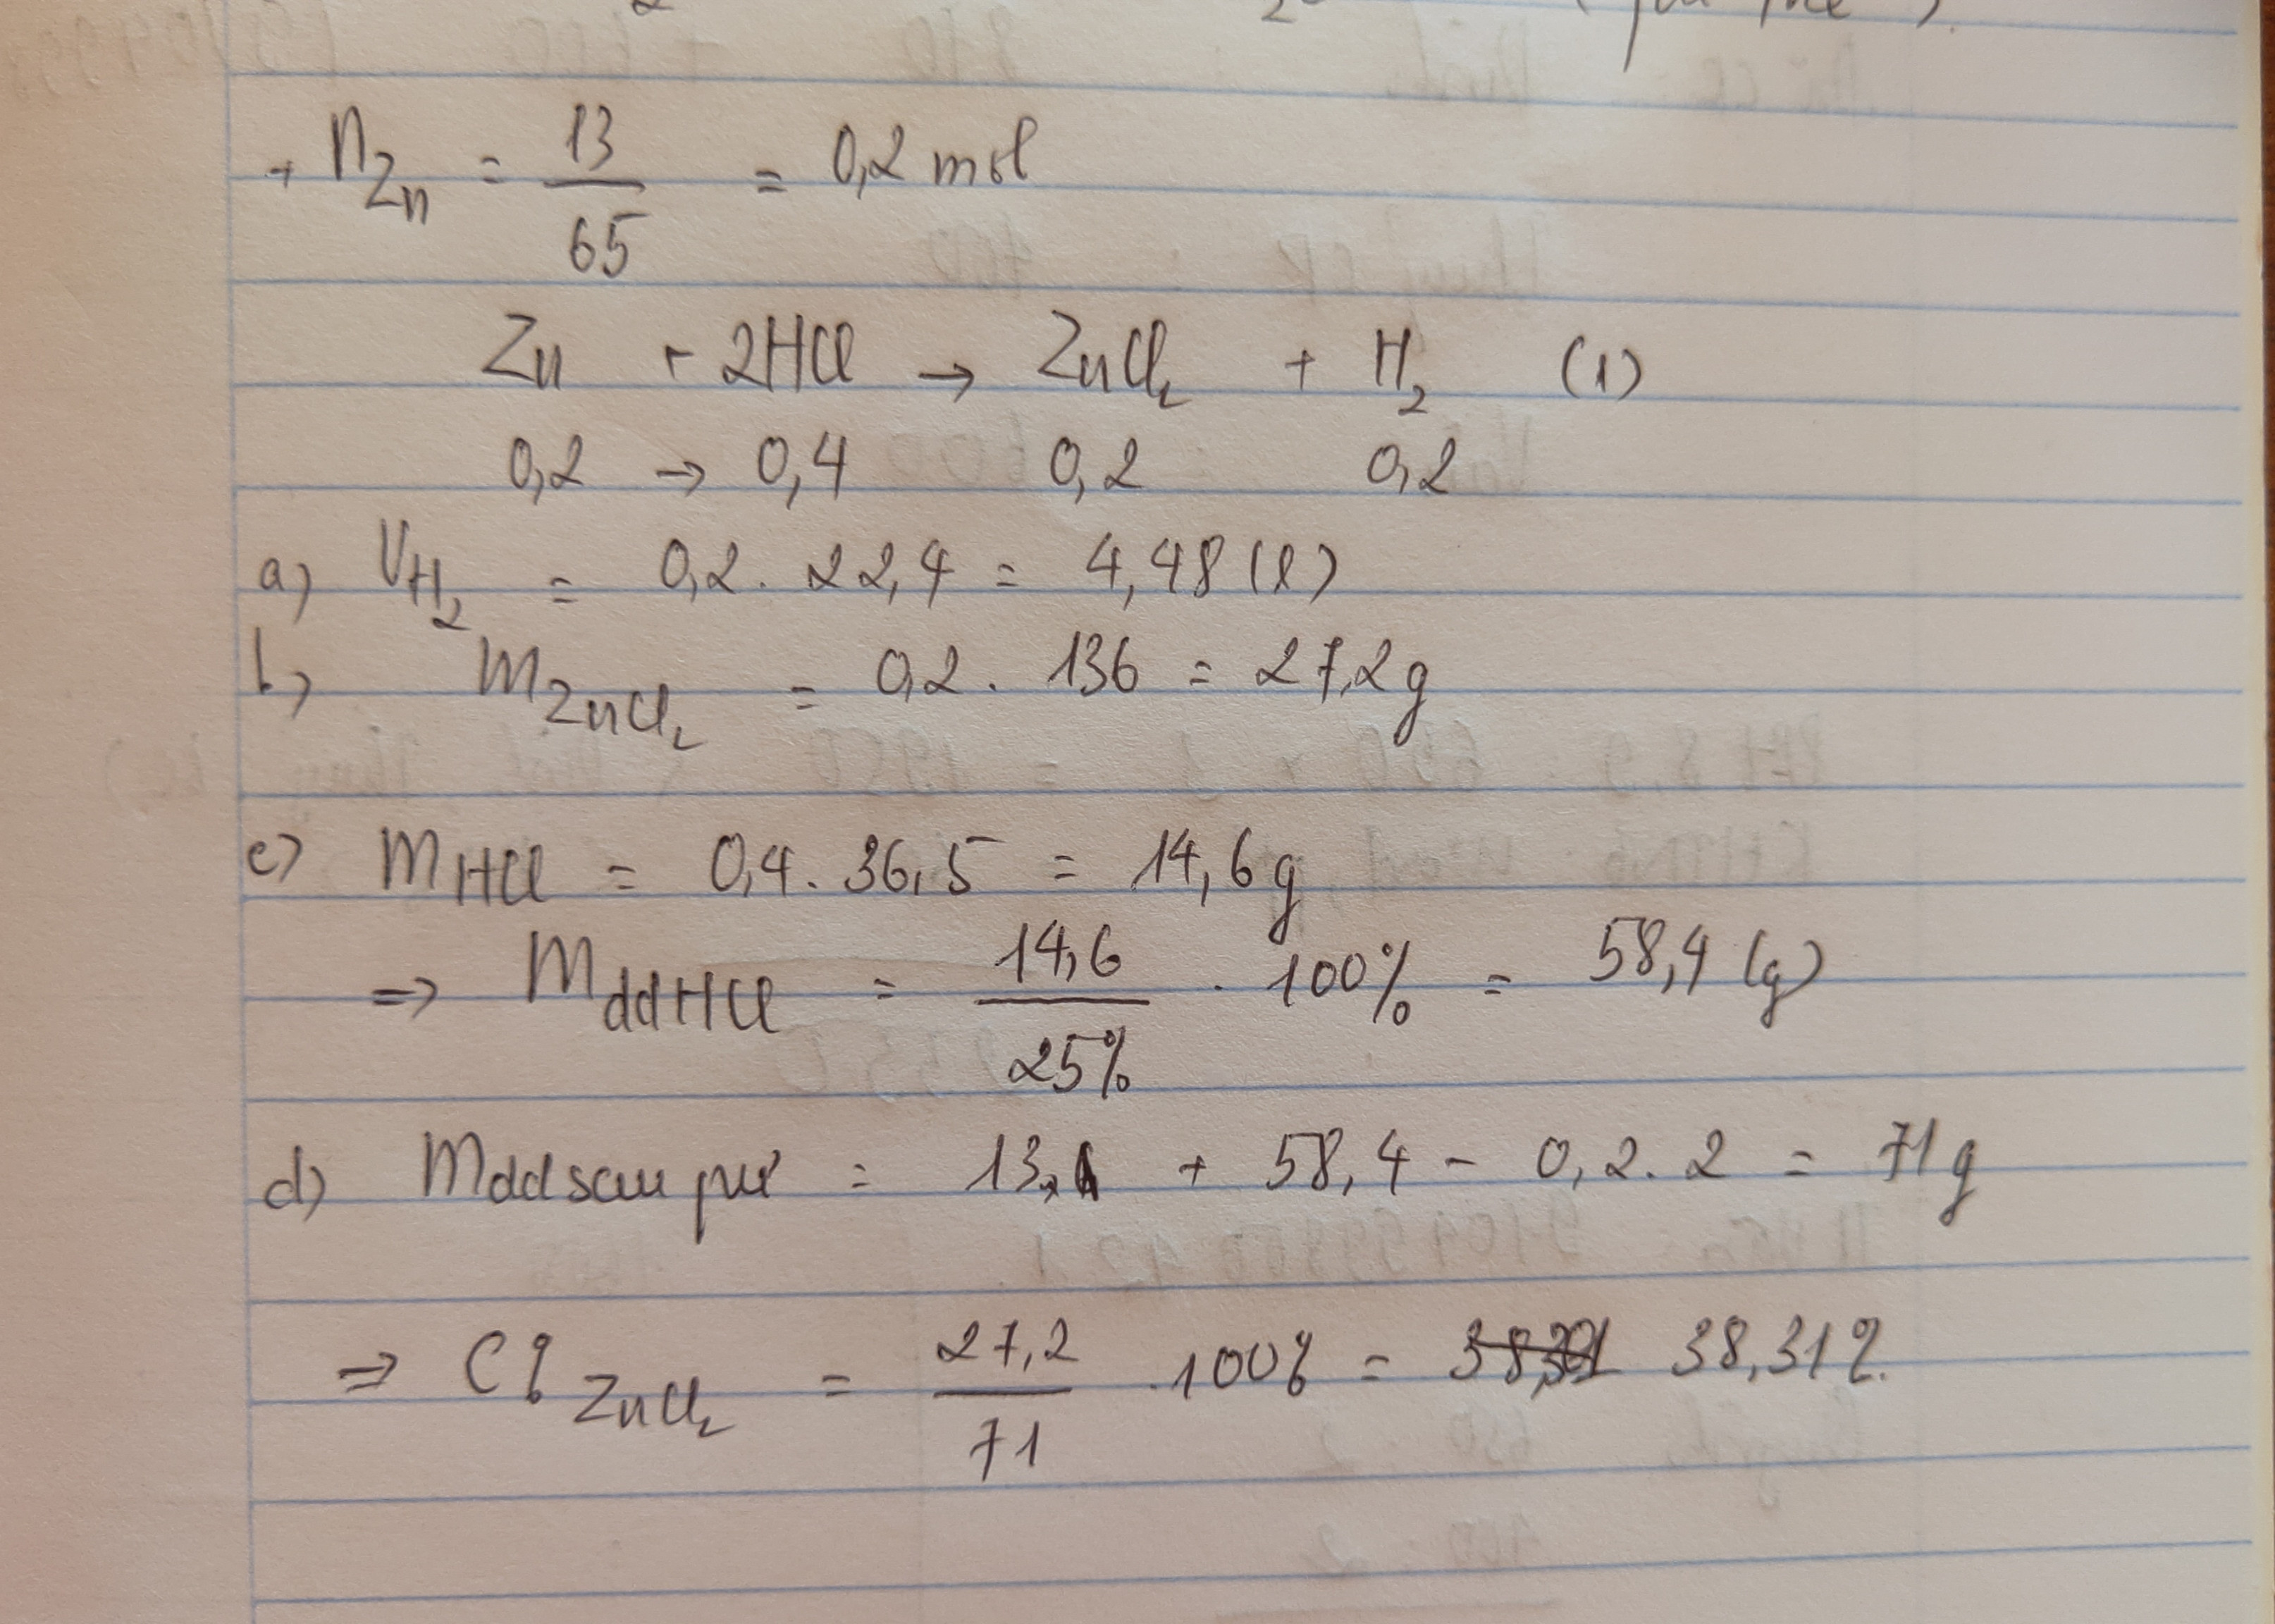 + nZn = 13/65 = 0,2 mol
Zn + 2HCl → ZnCl2 + H2 (1)
0,2 → 0,4 0,2 0,2
a) VH2 = 0,2 . 22,4 = 4,48 (l)
b) mZnCl2 = 0,2 . 136 = 27,2g
c) mHCl = 0,4 . 36,5 = 14,6g
⇒ mddHCl = 14,6/25% . 100% = 58,4 (g)
d) mddsau pư = 13 + 58,4 - 0,2 . 2 = 71g
⇒ C%ZnCl2 = 27,2/71 . 100% = 38,31%.